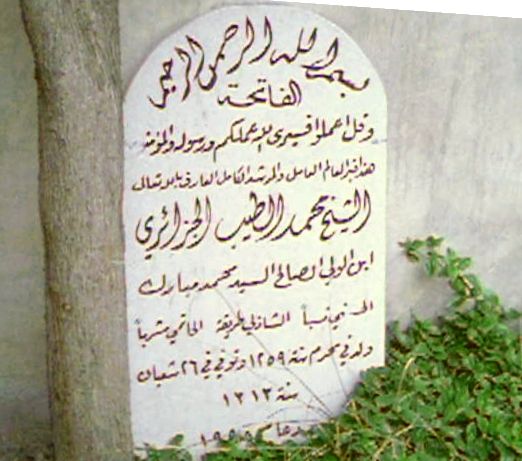 بسم الله الرحمن الرحيم
الفاتحة
وقل اعملوا فسيرى الله عملكم ورسوله والمؤمنون
هذا قبر العالم العامل والمرشد الكامل العارف بالله تعالى
الشيخ محمد الطيب الجزائري
ابن الولي الصالح السيد محمد مبارك
الحسني نسباً الشاذلي طريقة الخاتمي مشرباً
ولد في محرم سنة ١٢٥٩ وتوفي في ٢٦ شعبان
سنة ١٣١٣